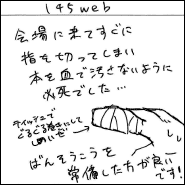 145 web
会場に来てすぐに
指を切ってしまい
本を血で汚さないように
必死でした…
ティッシュで
ぐるぐる巻きにして
しめいぜ
ばんそうこうを
常備した方が良い
です!